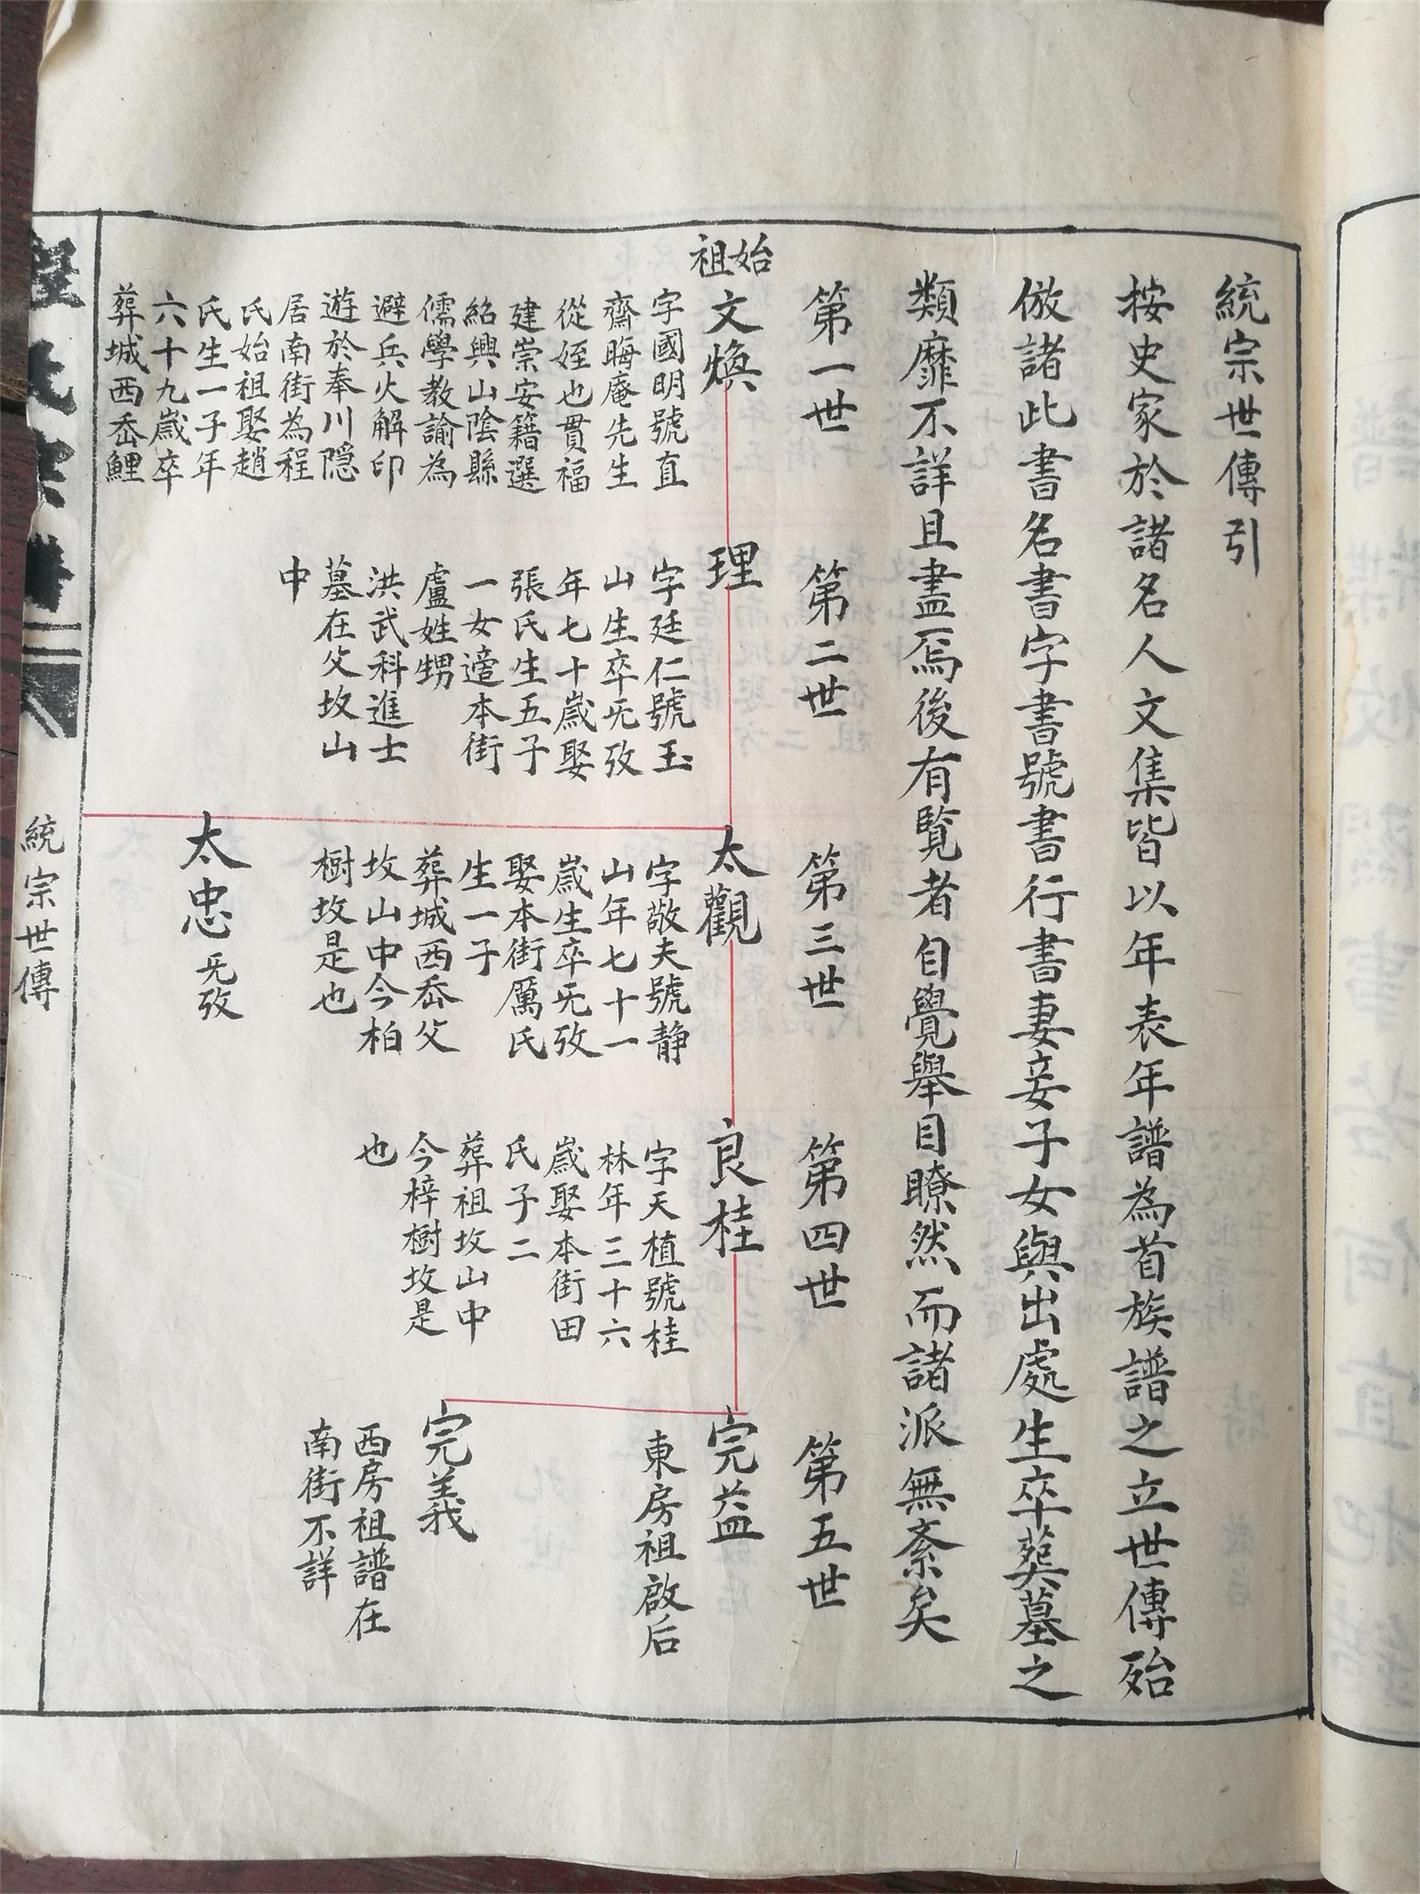 統宗世傳引
按史家於諸名人文集皆以年表年譜為首族譜之立世傳殆
倣諸此書名書字書號書行書妻妾子女與出處生卒葬墓之
類靡不詳且盡焉後有覽者自覺舉目瞭然而諸派無紊矣
第一世
第二世
第三世
第四世
第五世
始祖
文煥
字國明號直
齋晦庵先生
從姪也貫福
建崇安籍選
紹興山陰縣
儒學教諭為
避兵火解印
遊於奉川隠
居南街為程
氏始祖娶趙
氏生一子年
六十九歲卒
葬城西岙鯉
理
字廷仁號玉
山生卒旡攷
年七十歲娶
張氏生五子
一女適本街
盧姓甥
洪武科進士
墓在父坟山
中
太觀
字敬夫號静
山年七十一
歲生卒旡攷
娶本街厲氏
生一子
葬城西岙父
坟山中今柏
樹坟是也
太忠
旡攷
良桂
字天植號桂
林年三十六
歲娶本街田
氏子二
葬祖坟山中
今梓樹坟是
也
完益
東房祖啟后
完義
西房祖譜在
南街不詳
統宗世傳